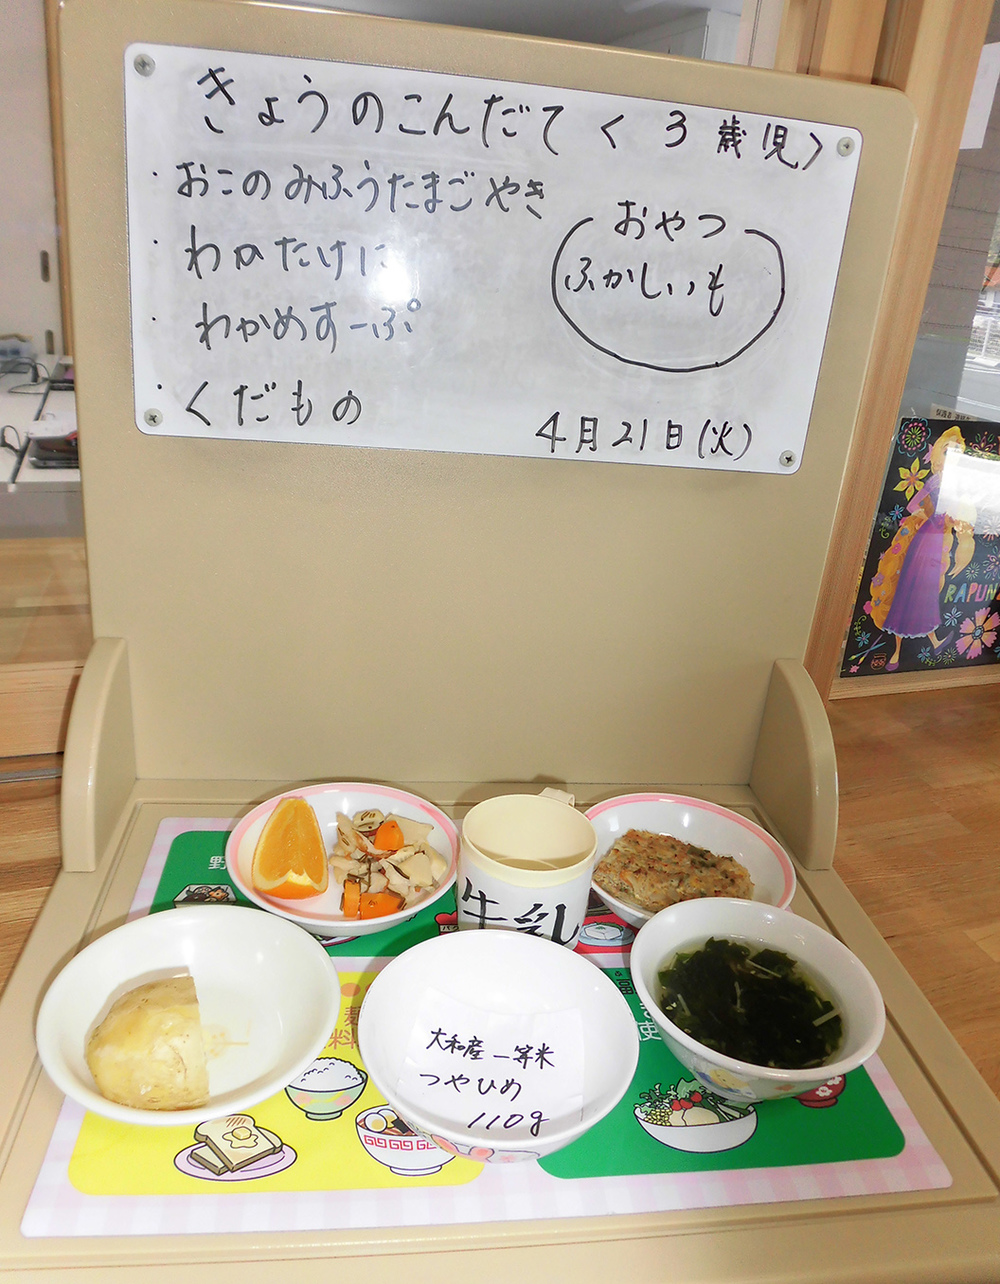 きょうのこんだて < 3歳児>
・おこのみふうたまごやき
・わかたけに
・わかめすーぷ
・くだもの
おやつ
ふかしいも
4月21日(火)
RAPUN
野
牛乳
大和産一等米
つやひめ
110g